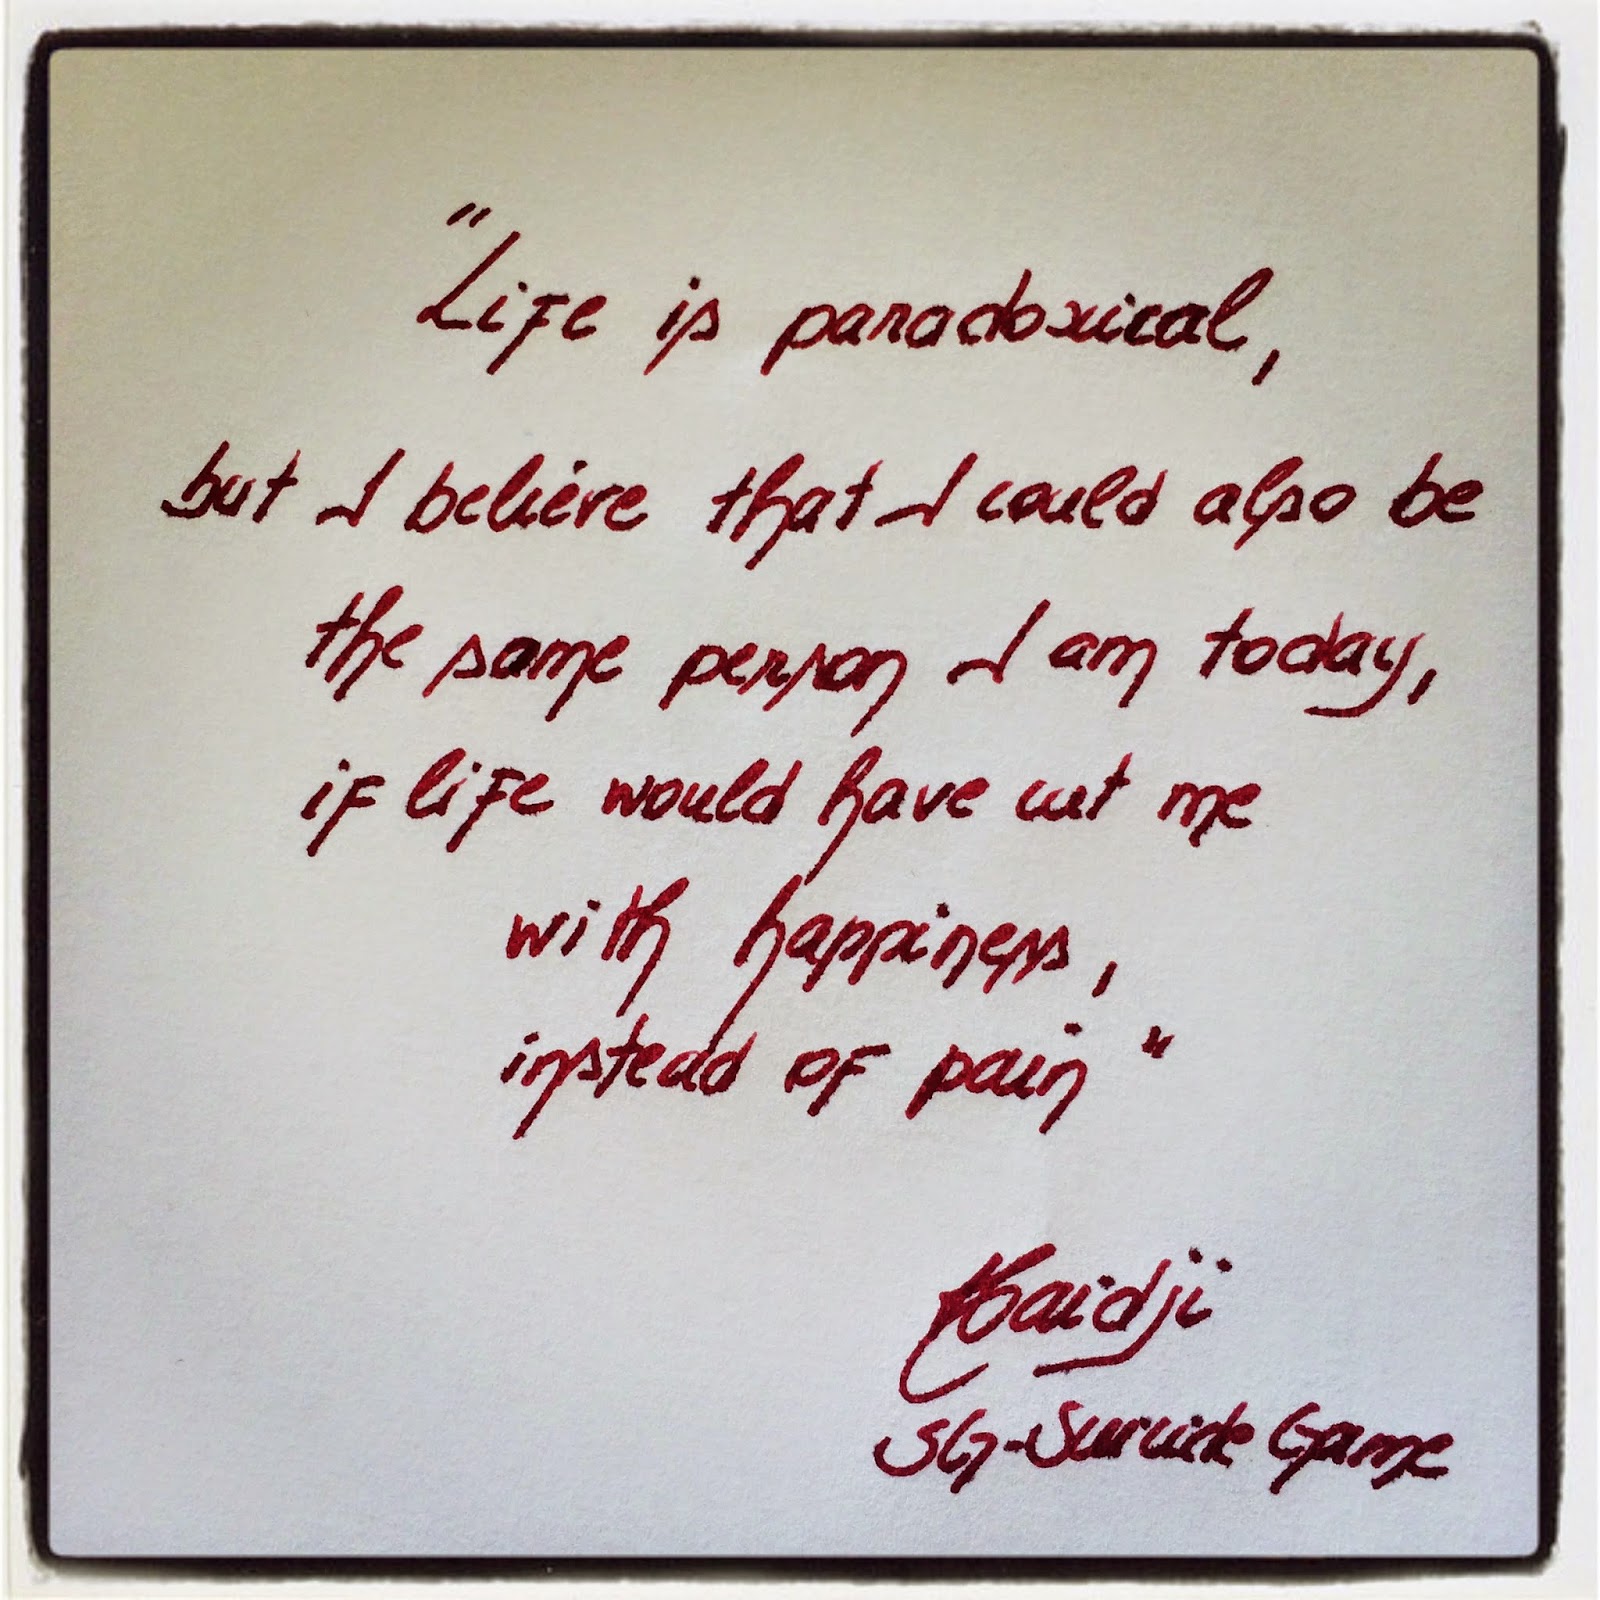 "Life is paradoxical,
but I believe that I could also be
the same person I am today,
if life would have cut me
with happiness,
instead of pain"
Haidji
SG-Suicide Game